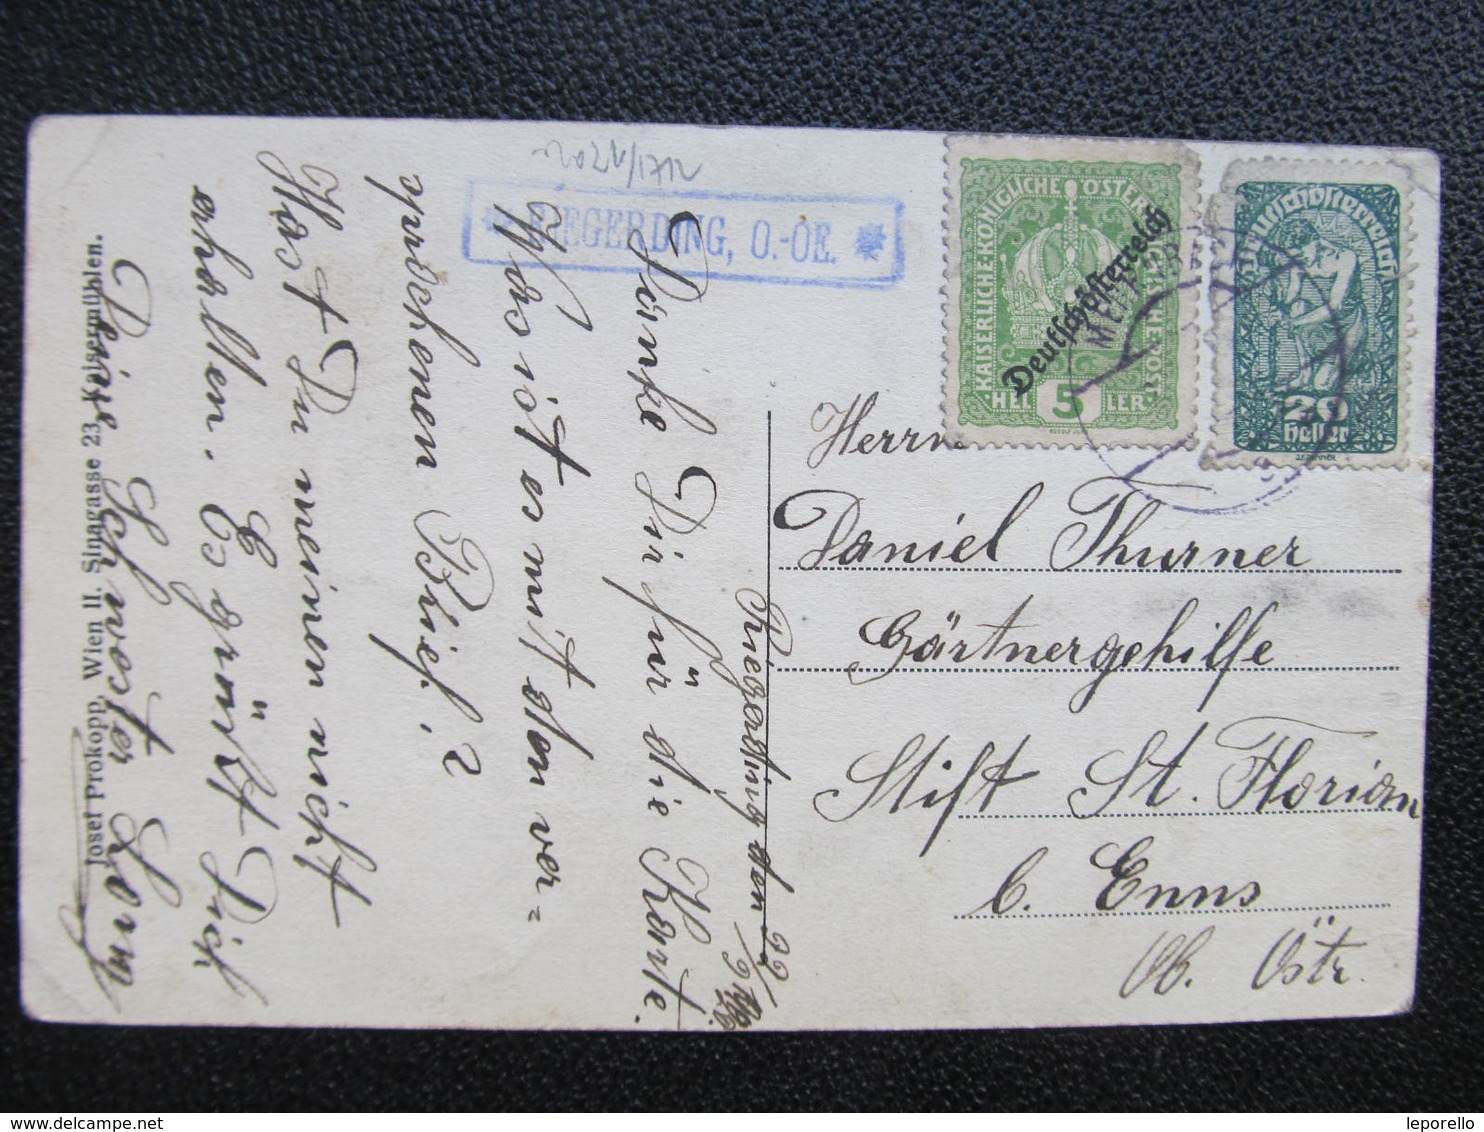 Riegerding den 22/9
Danke Dir für die Karte.
Was ist es mit den ver=
sprochenen Brief?
Hast Du meinen nicht
erhalten. Es grüßt Dich
Deine Schwester
Josef Prokopp, Wien II. Sinagasse 23, Kaisermühlen.
* RIEGERDING, O.-OE. *
KAISERLICHE KÖNIGLICHE ÖSTERR
Deutschösterreich
5
HELLER
Deutschösterreich
20
heller
Herrn
Daniel Thurner
Gärtnergehilfe
Stift St. Florian
b. Enns
Ob. Östr.
leporello